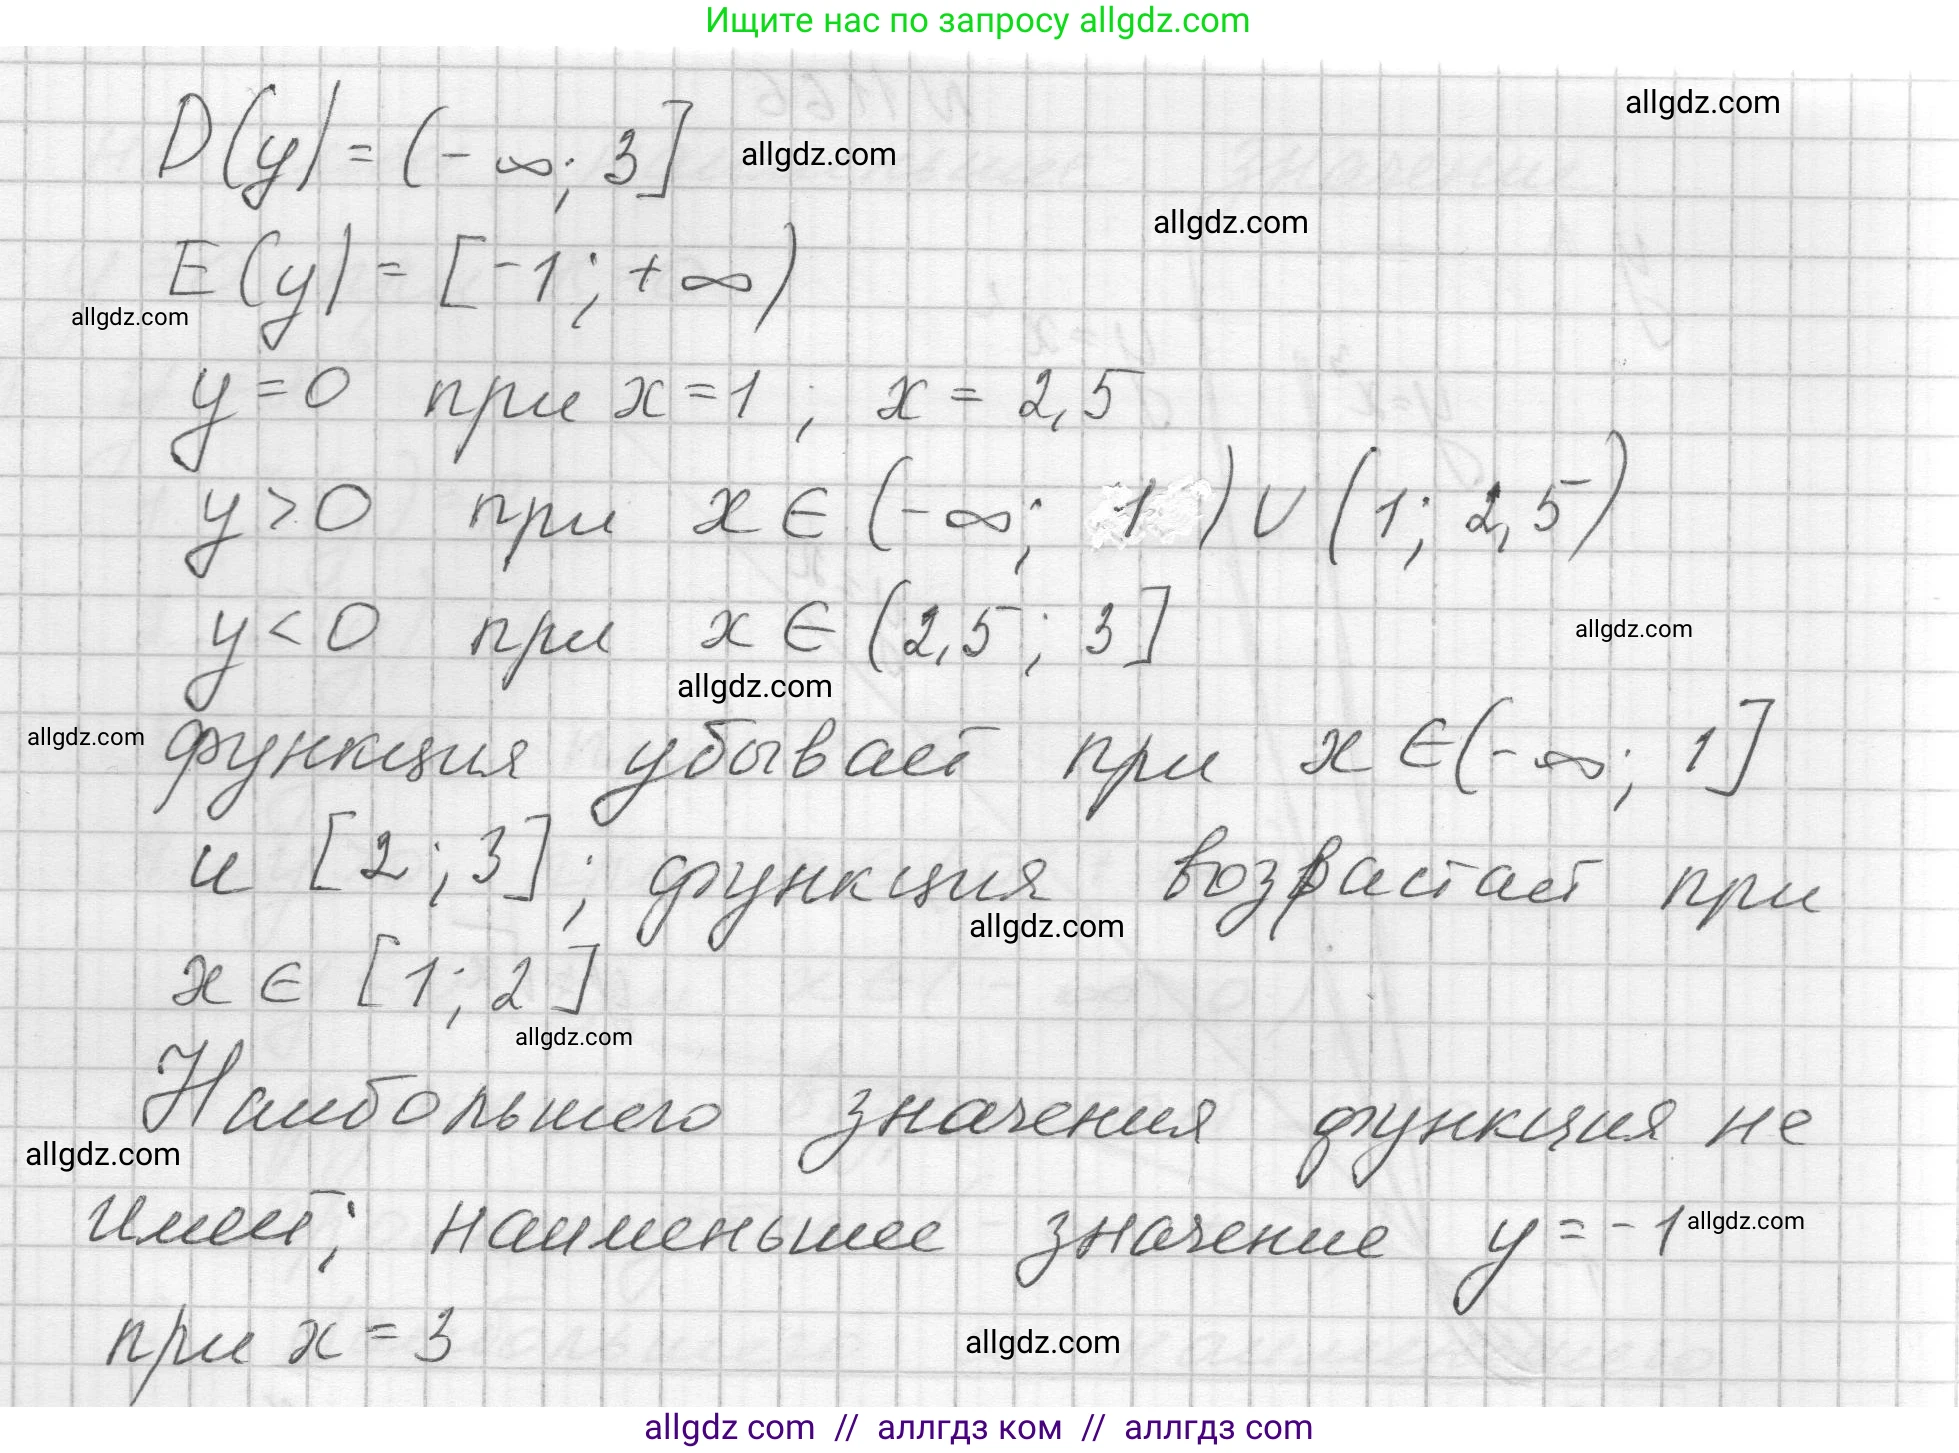 Ищите нас по запросу allgdz.com
allgdz.com
D(y) = (-∞; 3] allgdz.com
allgdz.com
E(y) = [-1; +∞)
allgdz.com
y = 0 при x = 1 ; x = 2,5
y > 0 при x ∈ (-∞; 1) ∪ (1; 2,5)
y < 0 при x ∈ (2,5 ; 3]
allgdz.com
allgdz.com
allgdz.com
функция убывает при x ∈ (-∞; 1]
и [2 ; 3] ; функция возрастает при
allgdz.com
x ∈ [1; 2]
allgdz.com
Наибольшего значения функция не
allgdz.com
имеет; наименьшее значение y = -1 allgdz.com
при x = 3
allgdz.com
allgdz com // аллгдз ком // аллгдз com